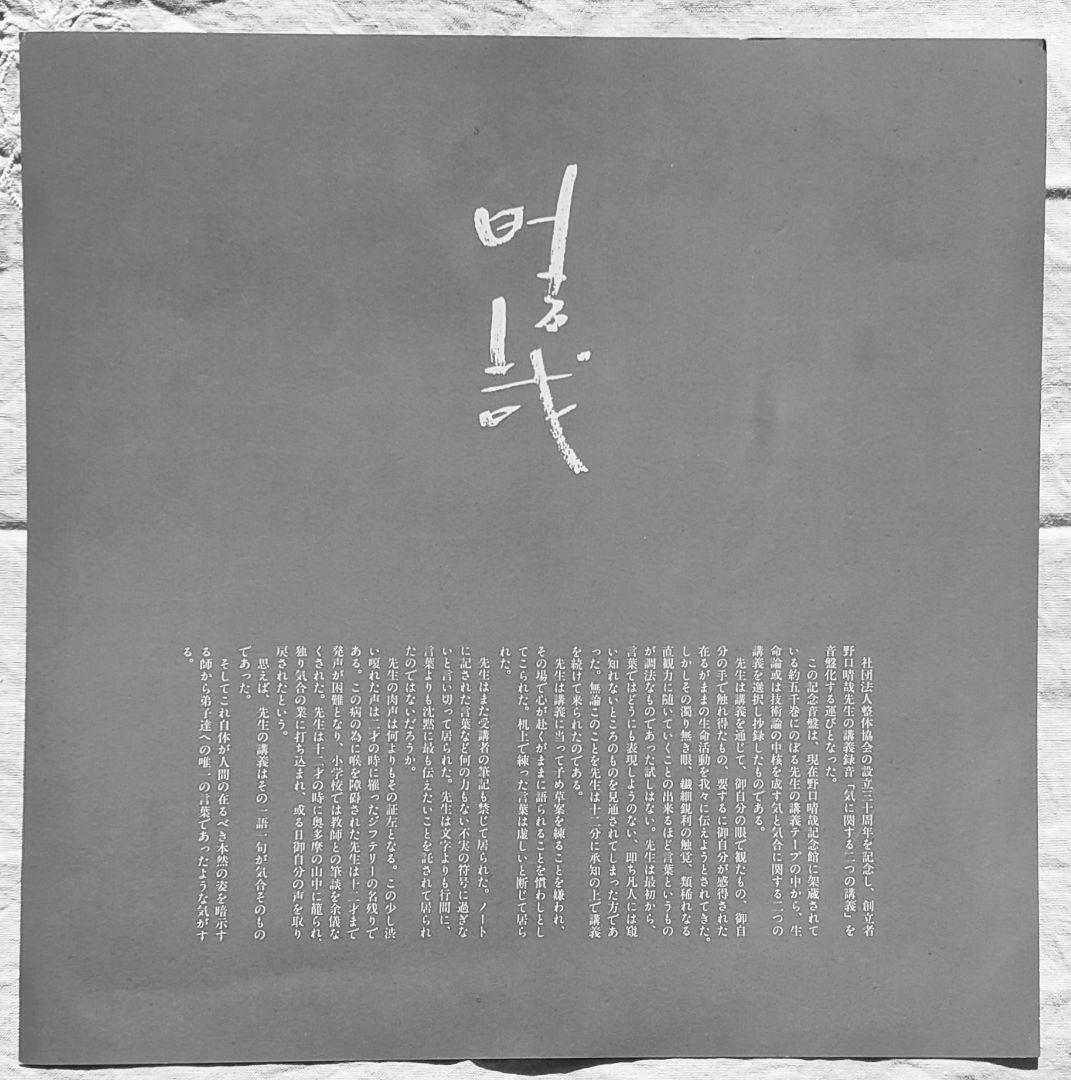 晴哉
社団法人整体協会の設立三十周年を記念し、創立者
野口晴哉先生の講義録音「気に関する二つの講義」を
音盤化する運びとなった。
この記念音盤は、現在野口晴哉記念館に架蔵されて
いる約五千巻にのぼる先生の講義テープの中から、生
命論或は技術論の中核を成す気と気合に関する二つの
講義を選択し抄録したものである。
先生は講義を通じて、御自分の眼で観たもの、御自
分の手で触れ得たもの、要するに御自分が感得された
在るがままの生命活動を我々に伝えようとされてきた。
しかしその濁り無き眼、繊細鋭利の触覚、類稀れなる
直観力に随いていくことの出来るほど言葉というもの
が調法なものであった試しはない。先生は最初から、
言葉ではどうにも表現しようのない、即ち凡人には窺
い知れないところのものを見通されてしまった方であ
った。無論このことを先生は十二分に承知の上で講義
を続けて来られたのである。
先生は講義に当って予め草案を練ることを嫌われ、
その場で心が赴くがままに語られることを慣わしとし
てこられた。机上で練った言葉は虚しいと断じて居ら
れた。
先生はまた受講者の筆記も禁じて居られた。ノート
に記された言葉など何の力もない不実の符号に過ぎな
いと言い切って居られた。先生は文字よりも行間に、
言葉よりも沈黙に最も伝えたいことを託されて居られ
たのではないだろうか。
先生の肉声は何よりもその証左となる。この少し渋
い嗄れた声は二才の時に罹ったジフテリーの名残りで
ある。この病の為に喉を障碍された先生は十二才まで
発声が困難となり、小学校では教師との筆談を余儀な
くされた。先生は十二才の時に奥多摩の山中に籠られ、
独り気合の業に打ち込まれ、或る日御自分の声を取り
戻されたという。
思えば、先生の講義はその一語一句が気合そのもの
であった。
そしてこれ自体が人間の在るべき本然の姿を暗示す
る師から弟子達への唯一の言葉であったような気がす
る。